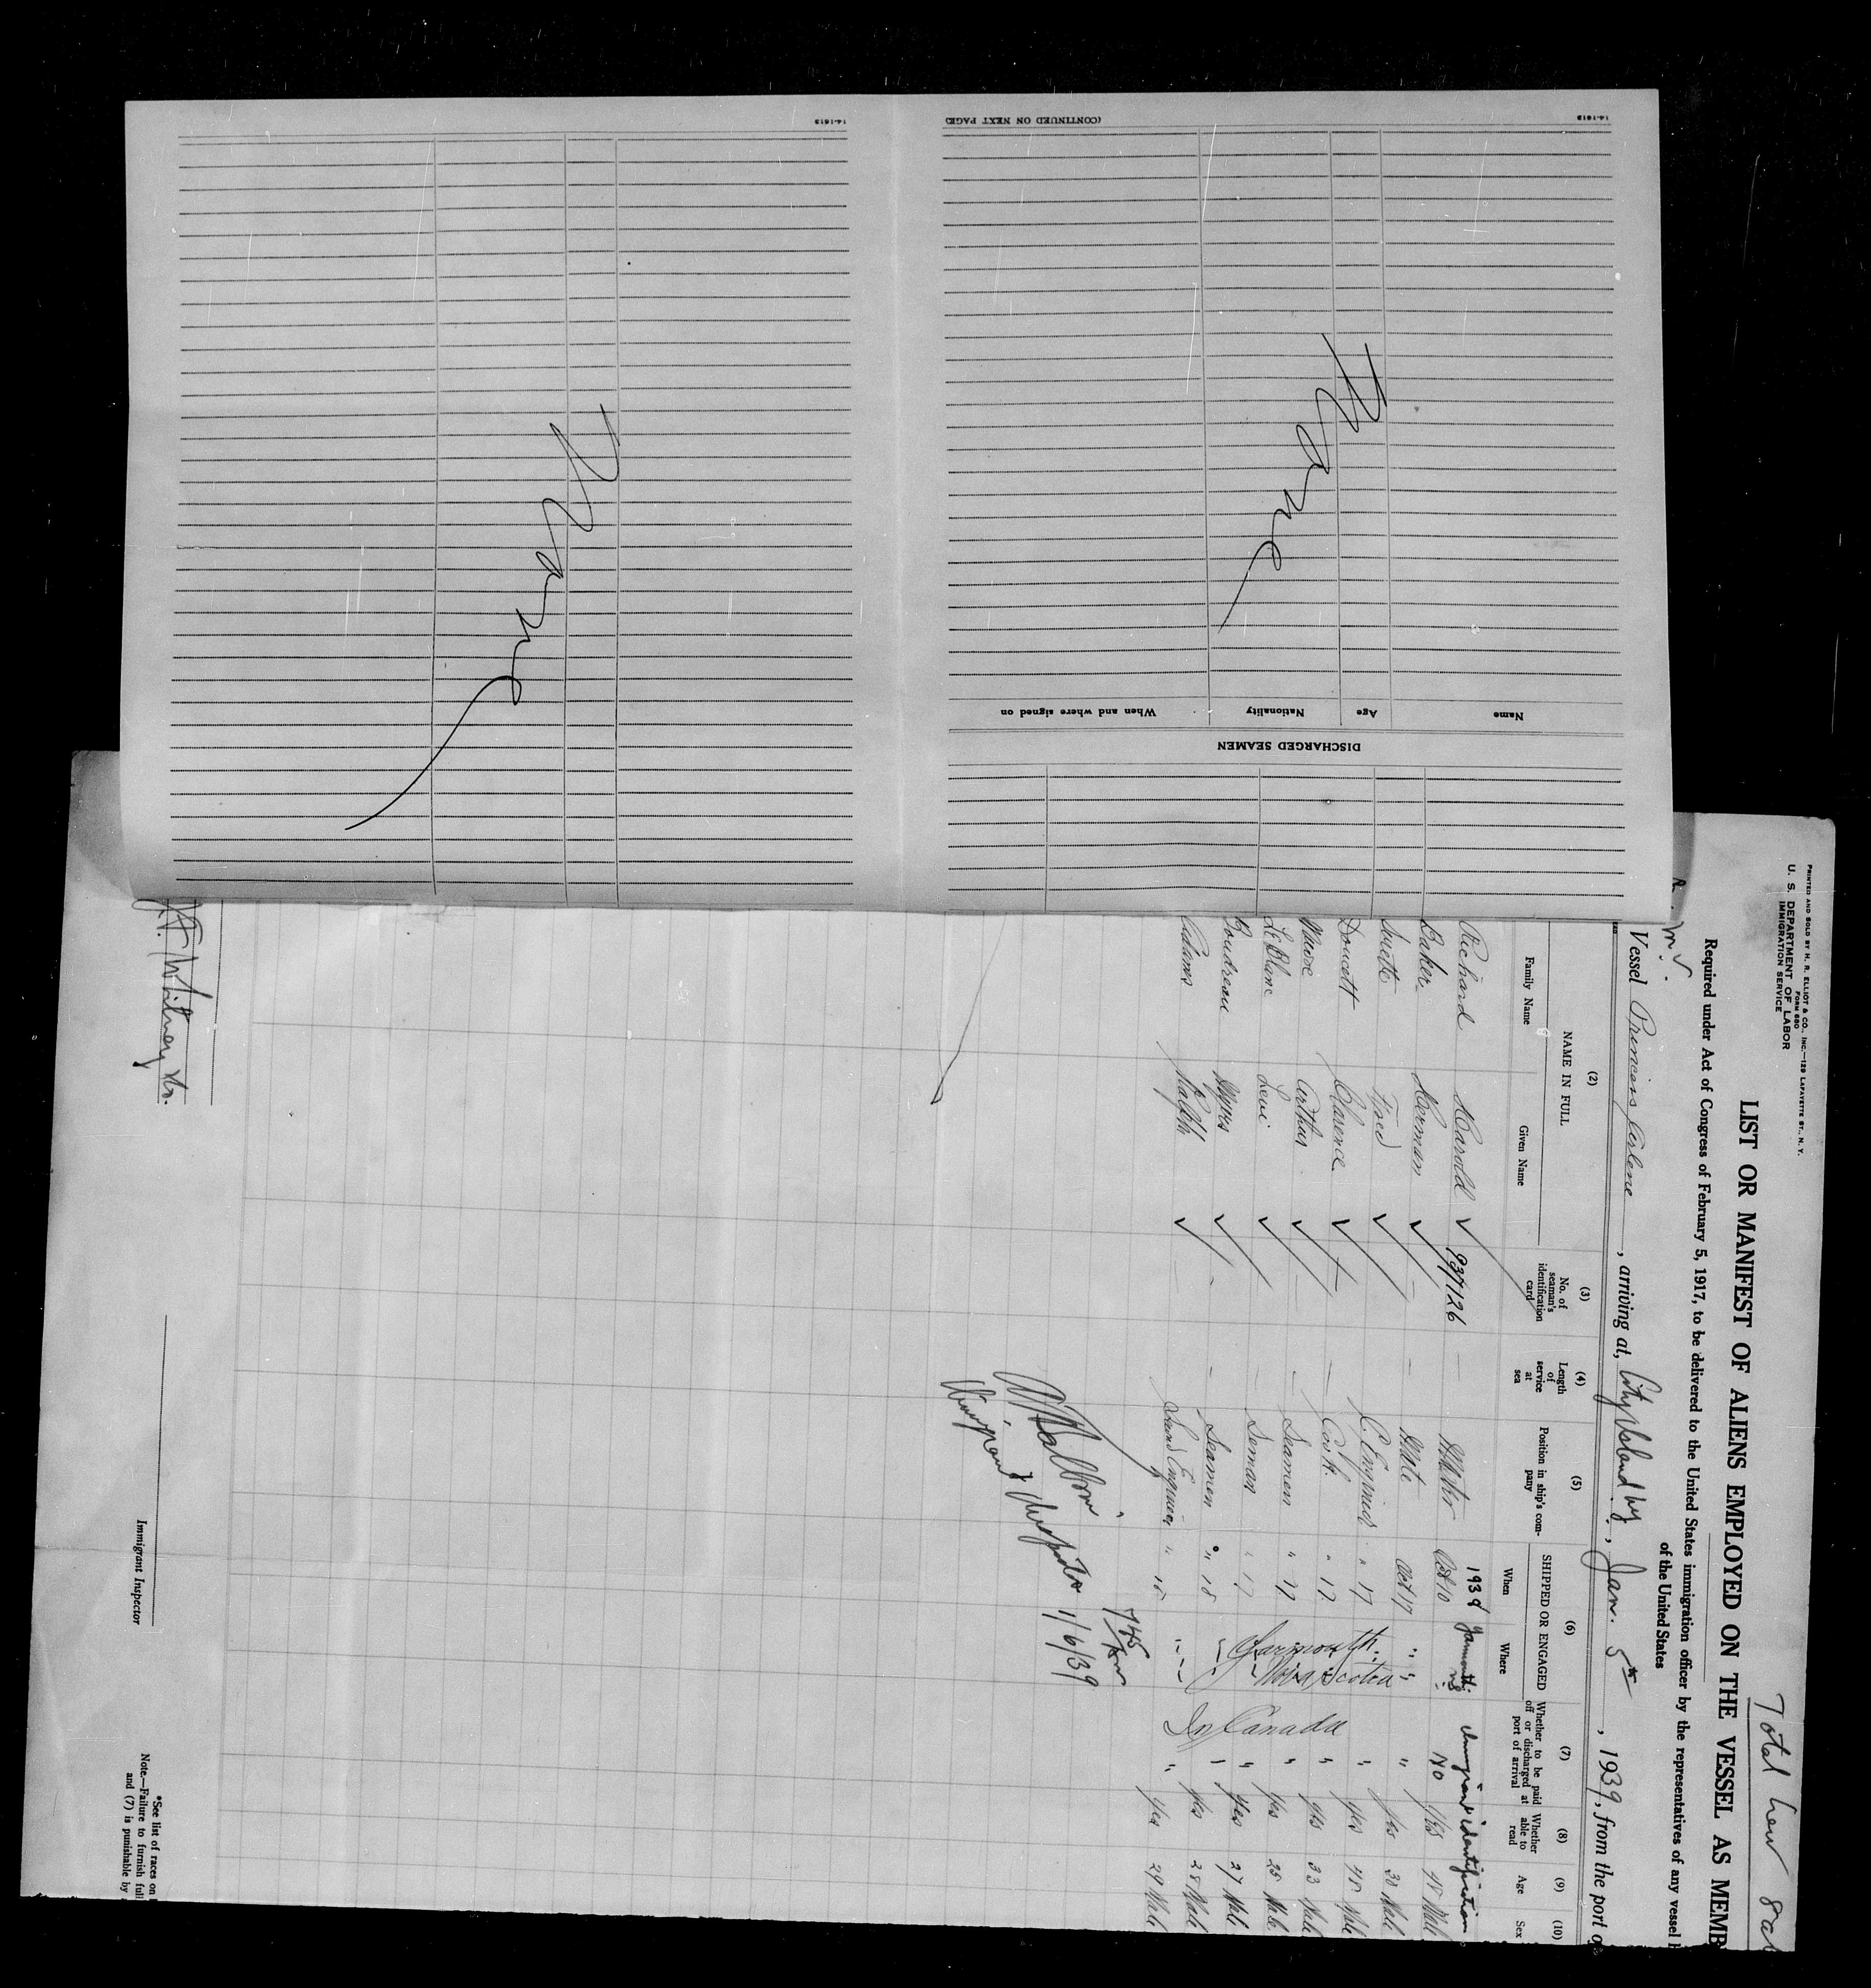 14-1613
(CONTINUED ON NEXT PAGE)
14-1613
None
None
When and where signed on
Nationality
Age
Name
DISCHARGED SEAMEN
PRINTED AND SOLD BY H. R. ELLIOT & CO., INC.—129 LAFAYETTE ST., N. Y.
FORM 680
U. S. DEPARTMENT OF LABOR
IMMIGRATION SERVICE
Total new 8
LIST OR MANIFEST OF ALIENS EMPLOYED ON THE VESSEL AS MEMB
Required under Act of Congress of February 5, 1917, to be delivered to the United States immigration officer by the representatives of any vessel
of the United States
M.V.
Vessel Princess Arlene, arriving at, City Island Ny., Jan. 5th, 1939, from the port of
(2) (3) (4) (5) (6) (7) (8) (9) (10)
NAME IN FULL
Family Name Given Name
No. of seaman's identification card
Length of service at sea
Position in ship's company
SHIPPED OR ENGAGED
When Where
Whether to be paid off or discharged at port of arrival
Whether able to read
Age
Sex
1938 Yarmouth N.S.
identification
Richard Harold 937126 — Master Oct 10 No Yes 48 Male
Baker Herman — — Mate Oct 17 " " " Yes 30 Male
Fred — C. Engineer " 17 " Yes 48 Male
Doucett Clarence — — Cook " 17 Yarmouth " Yes 33 Male
Muise Arthur — — Seamen " 17 Nova Scotia " Yes 25 Male
LeBlanc Levi — — Seman " 17 " Yes 27 Male
Boudreau — — Seamen " 18 " Yes 28 Male
Adams Ralph — Second Engineer " 18 " Yes 29 Male
In Canada
745
1/6/39
Whitney
Immigrant Inspector
*See list of races on
Note.—Failure to furnish full
and (7) is punishable by